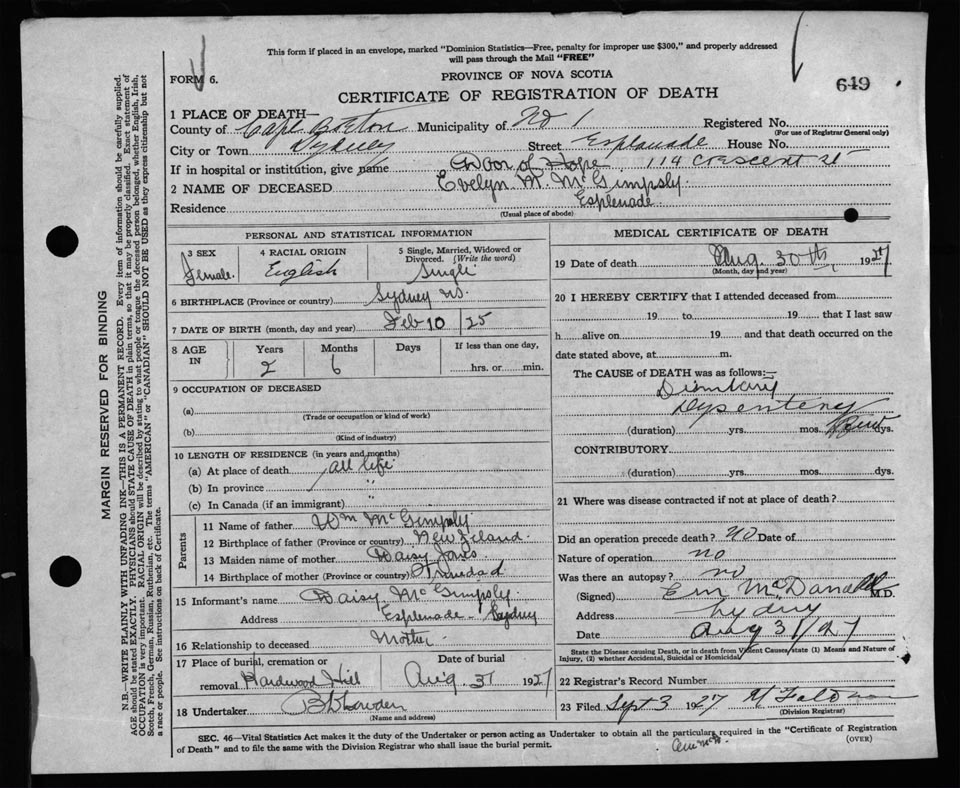 This form if placed in an envelope, marked "Dominion Statistics—Free, penalty for improper use $300," and properly addressed
will pass through the Mail "FREE"
FORM 6.
PROVINCE OF NOVA SCOTIA
649
CERTIFICATE OF REGISTRATION OF DEATH
1 PLACE OF DEATH—
County of Cape Breton Municipality of No 1 Registered No.
(For use of Registrar General only)
City or Town Sydney Street Esplanade House No.
If in hospital or institution, give name Door of Hope 114 Crescent St
2 NAME OF DECEASED Evelyn M. McGimpsly
Residence Esplenade
(Usual place of abode)
PERSONAL AND STATISTICAL INFORMATION
3 SEX Female.
4 RACIAL ORIGIN English
5 Single, Married, Widowed or Divorced. (Write the word) Single
6 BIRTHPLACE (Province or country) Sydney NS.
7 DATE OF BIRTH (month, day and year) Feb 10 / 25
8 AGE IN Years 2 Months 6 Days If less than one day, hrs. or min.
9 OCCUPATION OF DECEASED
(a)
(Trade or occupation or kind of work)
(b)
(Kind of industry)
10 LENGTH OF RESIDENCE (in years and months)
(a) At place of death all life
(b) In province "
(c) In Canada (if an immigrant)
Parents
11 Name of father Wm McGimpsly
12 Birthplace of father (Province or country) New Zeland
13 Maiden name of mother Daisy Jones
14 Birthplace of mother (Province or country) Trinedad
15 Informant's name Daisy McGimpsly
Address Esplenade - Sydney
16 Relationship to deceased Mother
17 Place of burial, cremation or removal Hardwood Hill
Date of burial Aug. 31 1927
18 Undertaker
(Name and address)
MEDICAL CERTIFICATE OF DEATH
19 Date of death Aug. 30th, 1927
(Month, day and year)
20 I HEREBY CERTIFY that I attended deceased from
19 to 19 that I last saw
h alive on 19 and that death occurred on the
date stated above, at m.
The CAUSE of DEATH was as follows:—
Dysentery
(duration) yrs. mos. few dys.
CONTRIBUTORY
(duration) yrs. mos. dys.
21 Where was disease contracted if not at place of death?
Did an operation precede death? No Date of
Nature of operation no
Was there an autopsy? no
(Signed) McDonald M.D.
Address Sydney
Date Aug 31/27
State the Disease causing Death, or in death from Violent Causes state (1) Means and Nature of
Injury, (2) whether Accidental, Suicidal or Homicidal
22 Registrar's Record Number
23 Filed Sept 3 1927
(Division Registrar)
SEC. 46—Vital Statistics Act makes it the duty of the Undertaker or person acting as Undertaker to obtain all the particulars required in the "Certificate of Registration
of Death" and to file the same with the Division Registrar who shall issue the burial permit.
(OVER)
MARGIN RESERVED FOR BINDING
N.B.—WRITE PLAINLY WITH UNFADING INK—THIS IS A PERMANENT RECORD. Every item of information should be carefully supplied.
AGE should be stated EXACTLY. PHYSICIANS should STATE CAUSE OF DEATH in plain terms, so that it may be properly classified. Exact statement of
OCCUPATION is very important. RACIAL ORIGIN will be described by stating to what people or tongue the deceased person belonged, whether English, Irish,
Scotch, French, German, Russian, Ruthenian, etc. The terms "AMERICAN" or "CANADIAN" SHOULD NOT BE USED as they express citizenship but not
a race or people. See instructions on back of Certificate.